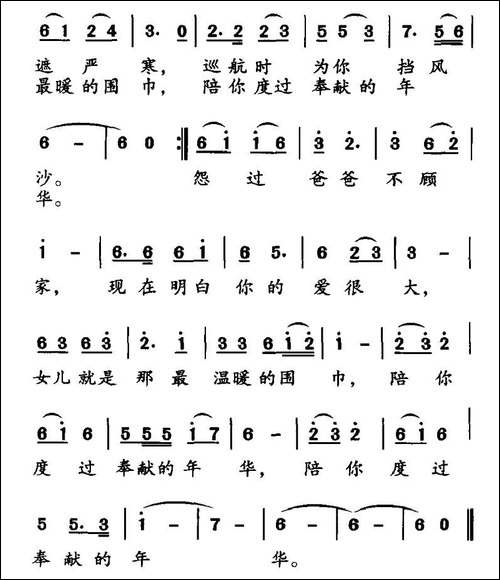 6̲1̲ 2̲4̲ | 3. 0 | 2̲.̲2̲ 2̲3̲ | 5̲5̲ 3 | 7. 5̲6̲ |
遮 严 寒, 巡航时 为你 挡风
最暖的围 巾, 陪你度过 奉献的 年
6 - | 6 0 :‖ 6̲1̲̇ 1̲̇6̲ | 3̲̇ 2̇. | 3̇ 6̲2̲̇ |
沙。 怨 过 爸爸 不顾
华。
1̇ - | 6̲.̲6̲ 6̲1̲̇ | 6̲ 5. | 6 2̲3̲ | 3 - |
家, 现在明白 你的 爱很 大,
6̲3̲ 6̲3̲̇ | 2̇. 1̲̇ | 3̲3̲ 6̲1̲̇2̲̇ | 1̇ - | 2̲̇3̲̇ 2̇ |
女儿就是 那最 温暖的围 巾, 陪你
6̲1̲̇ 6 | 5̲5̲5̲ 1̲̇7̲ | 6 - | 2̲̇3̲̇ 2̇ | 6̲1̲̇ 6 |
度过 奉献的年 华, 陪你 度过
5 5̲.̲3̲ | 1̇ - | 7 - | 6 - | 6 - | 6 0 ‖
奉献的 年 华。